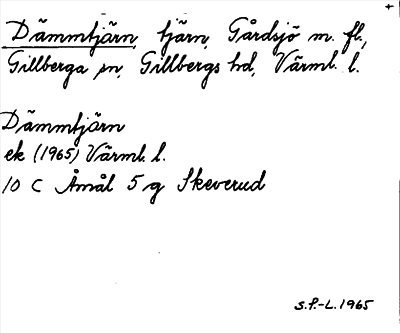 Dämmtjärn, tjärn, Gårdsjö m. fl.,
Gillberga sn, Gillbergs hd, Värml. l.
Dämmtjärn
ek (1965) Värml. l.
10 C Åmål 5 g Skeverud
S.P.-L. 1965